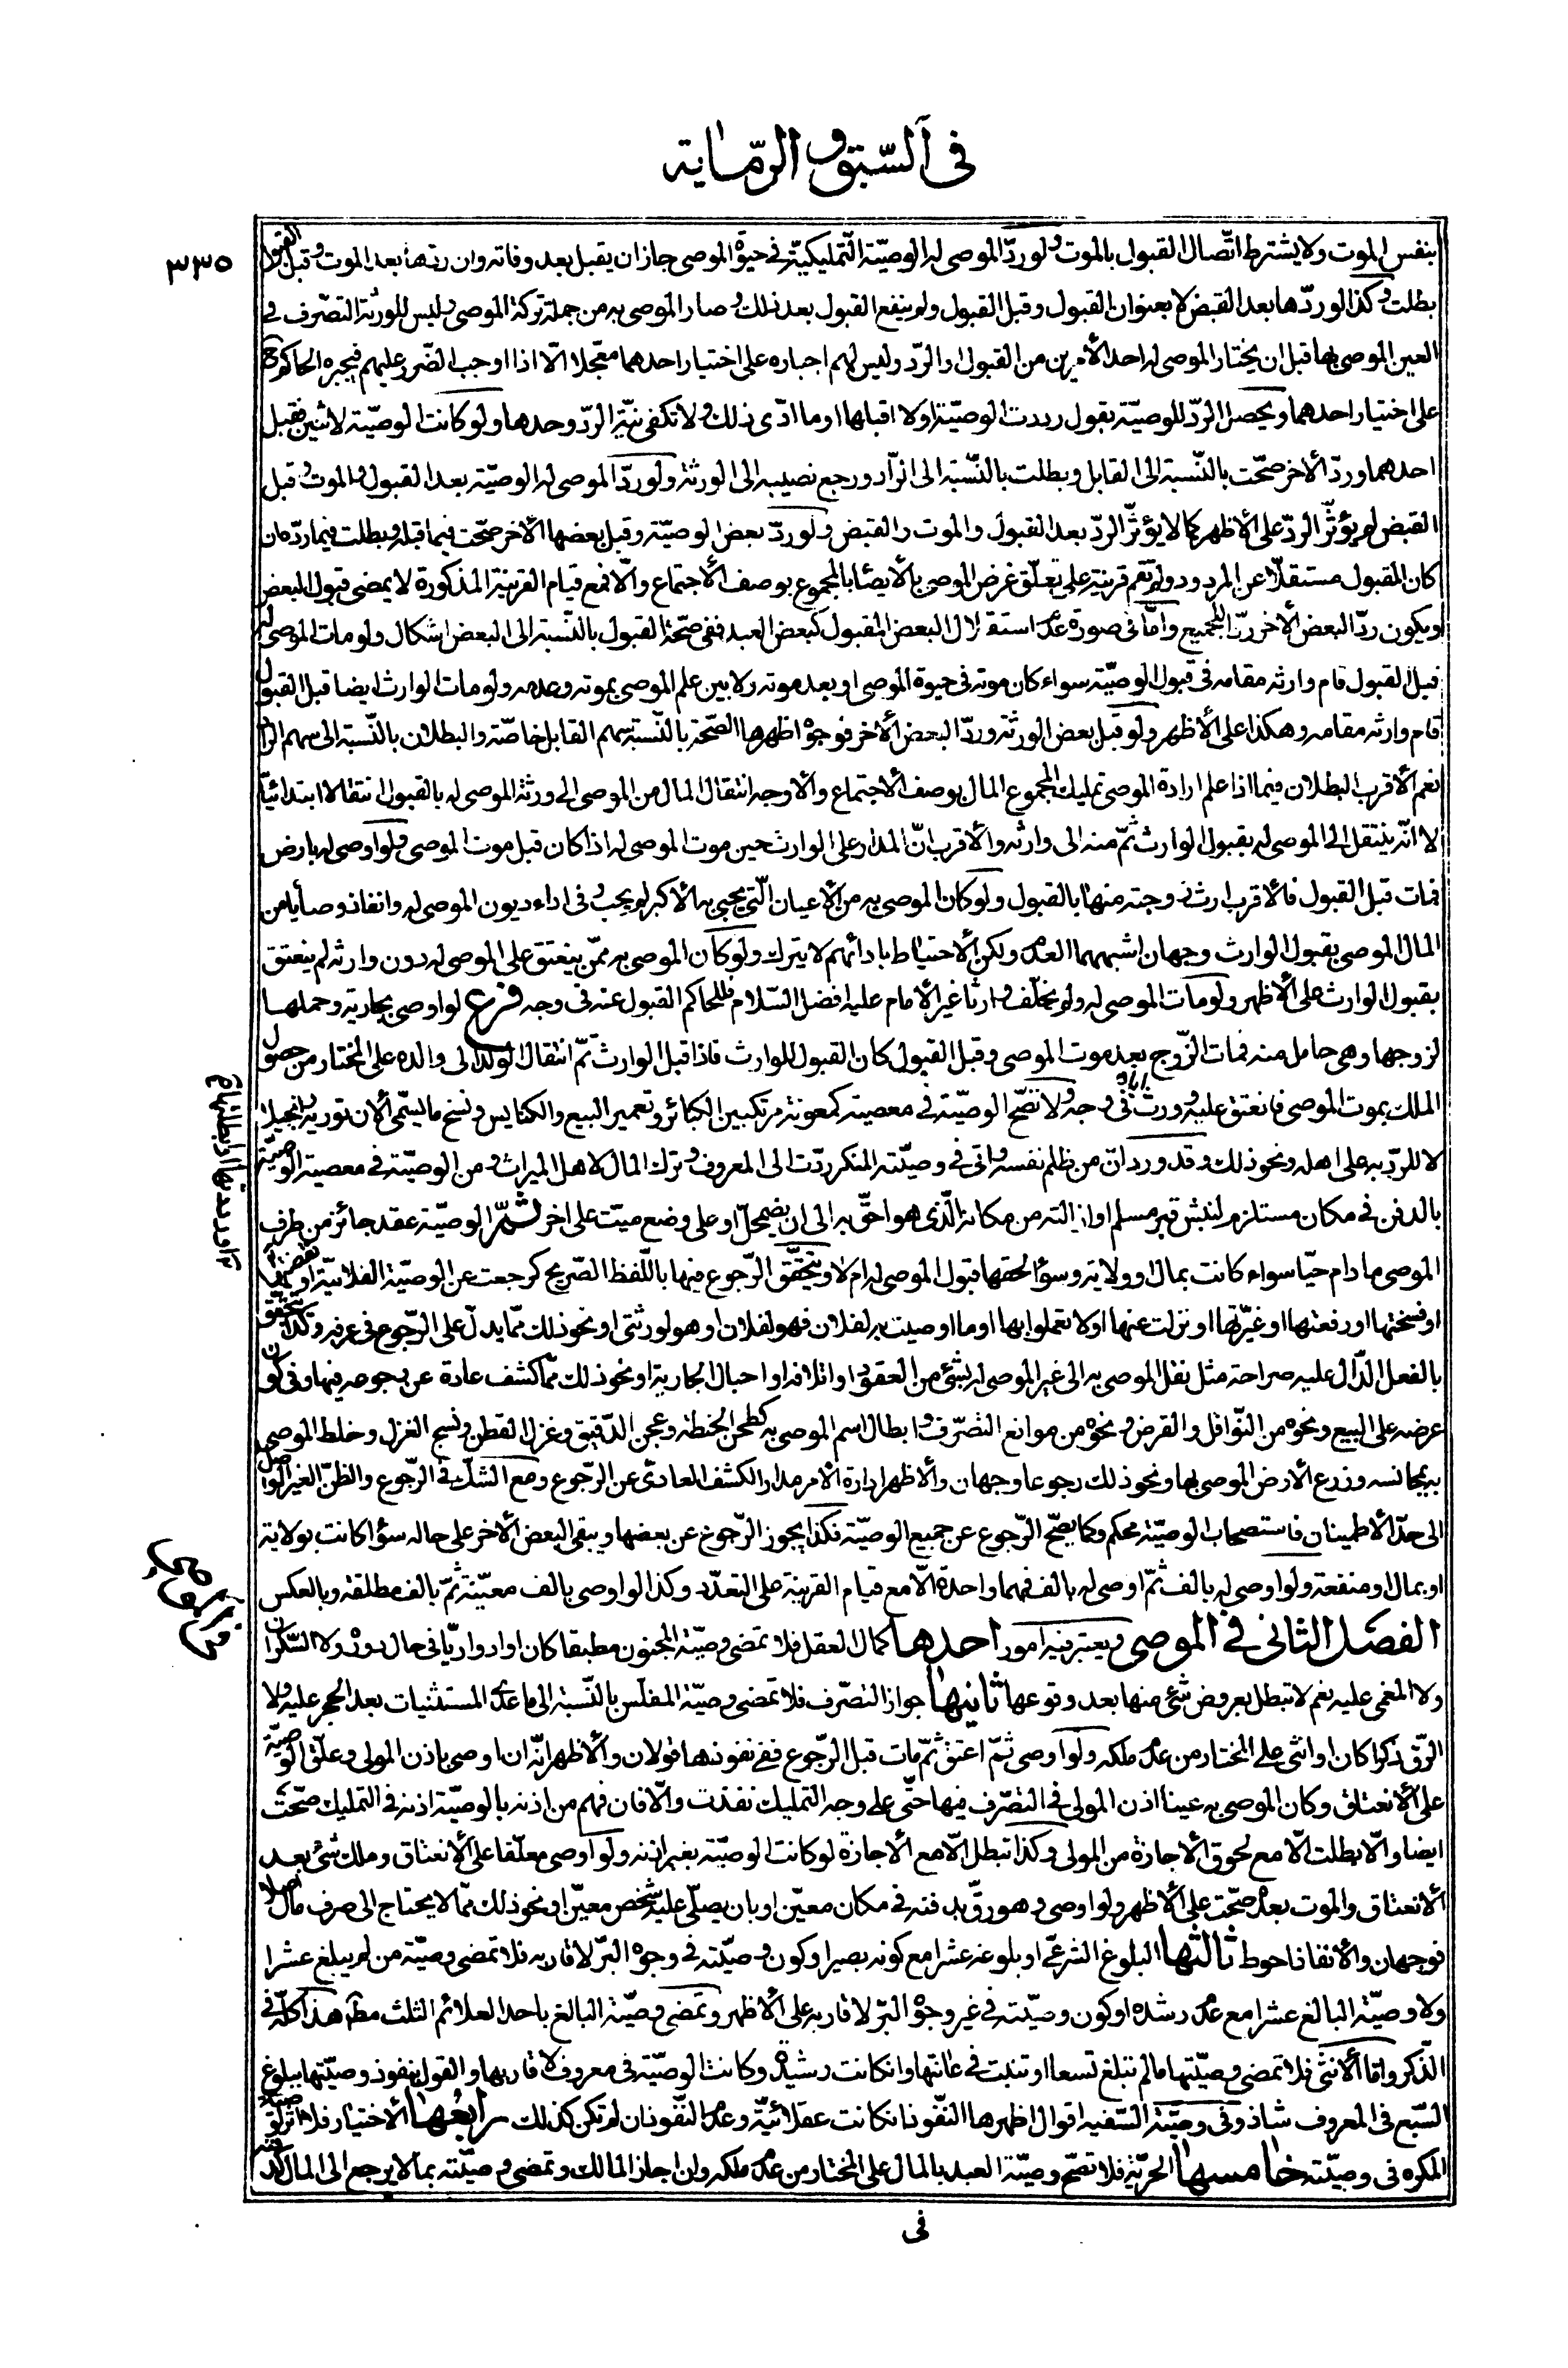 في السّبق و الرّماية
٣٣٥
بنفس الموت ولا يشترط اتّصال القبول بالموت ولو ردّ الموصى له الوصيّة التّمليكيّة في حيوة الموصى جاز ان يقبل بعد وفاته وان ردّها بعد الموت وقبل القبول
بطلت وكذا لو ردّها بعد القبض لا بعنوان القبول وقبل القبول ولم ينفع القبول بعد ذلك وصار الموصى به من جملة تركة الموصى وليس للورثة التصّرف في
العين الموصى بها قبل ان يختار الموصى له احد الأمرين من القبول او الرّد وليس لهم اجباره على اختيار احدهما معجّلا الّا اذا اوجب الضّرر عليهم فيجبره الحاكم ح
على اختيار احدهما ويحصل الردّ للوصيّة بقول رددت الوصيّة او لا اقبلها او ما ادّى ذلك ولا تكفى نيّة الردّ وحدها ولو كانت الوصيّة لاثنين فقبل
احدهما وردّ الأخر صحّت بالنّسبة الى القابل وبطلت بالنّسبة الى الرّاد ورجع نصيبه الى الورثة ولو ردّ الموصى له الوصيّة بعد القبول والموت وقبل
القبض لم يؤثّر الردّ على الأظهر كما لا يؤثّر الردّ بعد القبول والموت والقبض ولو ردّ بعض الوصيّة وقبل بعضها الأخر صحّت فيما قبله وبطلت فيما ردّه ان
كان المقبول مستقلّا عن المردود ولم تقم قرينة على تعلّق غرض الموصى بالأيصاء بالمجموع بوصف الأجتماع والّا فمع قيام القرينة المذكورة لا يمضى قبول البعض
ويكون ردّ البعض الأخر ردّ الجميع وامّا في صورة عدم استقلال البعض المقبول كبعض العبد ففى صحّة القبول بالنّسبة الى البعض اشكال ولو مات الموصى له
قبل القبول قام وارثه مقامه في قبول الوصيّة سواء كان موته في حيوة الموصى او بعد موته ولا بين علم الموصى بموته وعدمه ولو مات الوارث ايضا قبل القبول
قام وارثه مقامه وهكذا على الأظهر ولو قبل بعض الورثة وردّ البعض الأخر فوجوه اظهرها الصّحة بالنّسبة سهم القابل خاصّة والبطلان بالنّسبة الى سهم الرّاد
نعم الأقرب البطلان فيما اذا علم ارادة الموصى تمليك المجموع المال بوصف الأجتماع والأوجه انتقال المال من الموصى الى ورثة الموصى له بالقبول انتقالا ابتدائيّا
لا انّه ينتقل الى الموصى له بقبول الوارث ثمّ منه الى وارثه والأقرب انّ المدار على الوارث حين موت الموصى له اذا كان قبل موت الموصى فلو اوصى له بارض
فمات قبل القبول فالأقرب ارث زوجته منها بالقبول ولو كان الموصى به من الأعيان الّتي يحبى بها الأكبر لم يجب وفى اداء ديون الموصى له وانفاذ وصاياه من
المال الموصى بقبول الوارث وجهان اشبههما العدم ولكن الأحتياط بادائهم لا يترك ولو كان الموصى به ممّن ينعتق على الموصى له دون وارثه لم ينعتق
بقبول الوارث على الأظهر ولو مات الموصى له ولم يخلّف وارثا غير الأمام عليه افضل السّلام فللحاكم القبول عنه في وجه فرع لو اوصى بجارية وحملها
لزوجها وهى حامل منه فمات الزّوج بعد موت الموصى وقبل القبول كان القبول للوارث فاذا قبل الوارث تمّ انتقال الولد الى والده على المختار من حصول
الملك بموت الموصى فانعتق عليه وورث اباه في وجه ولا تصّح الوصيّة في معصية كمعونة مرتكبين الكبائر وتعمير البيع والكنايس ونسخ ما يسمّى الأن توريه وانجيلا
لا للردّ به على اهله ونحو ذلك وقد ورد انّ من ظلم نفسه واتى في وصيّته المنكر ردّت الى المعروف وترك المال لاهل الميراث ومن الوصيّة في معصية الوصيّة
بالدفن في مكان مستلزم لنبش قبر مسلم او ازالته من مكانه الّذى هو احقّ به الى ان يضمحلّ او على وضع ميّت على اخر ثمّ الوصيّة عقد جائز من طرف
الموصى ما دام حيّا سواء كانت بمال او ولاية وسواء لحقها قبول الموصى له ام لا ويتحقّق الرّجوع فيها باللّفظ الصّريح كرجعت عن الوصيّة الفلانيّة او نقضتها
او فسختها او رفعتها او غيّرتها او نزلت عنها او لا تعملوا بها او ما اوصيت به لفلان فهو لفلان او هو لورثتى او نحو ذلك ممّا يدلّ على الرّجوع في عرفه وكذا يتحقّق
بالفعل الدّال عليه صراحة مثل نقل الموصى به الى غير الموصى له بشئ من العقود او اتلافه او احبال الجارية او نحو ذلك ممّا كشف عادة عن رجوعه فيها وفى كون
عرضه على البيع ونحوه من النّواقل والقرض ونحوه من موانع التصّرف وابطال اسم الموصى به كطحن الحنطة وعجن الدّقيق وغزل القطن ونسج الغزل وخلط الموصى
به بمجانسه وزرع الأرض الموصى بها ونحو ذلك رجوعا وجهان والأظهر ادارة الأمر مدار الكشف العادى عن الرّجوع ومع الشكّ في الرّجوع والظنّ الغير الواصل
الى حدّ الأطمينان فاستصحاب الوصيّة محكم وكما يصّح الرّجوع عن جميع الوصيّة فكذا يجوز الرّجوع عن بعضها ويبقى البعض الأخر على حاله سواء كانت بولاية
او بمال او منفعة ولو اوصى له بالف ثمّ اوصى له بالف فهما واحدة الّا مع قيام القرينة على التعدّد وكذا لو اوصى بالف معيّنة ثمّ بالف مطلقة وبالعكس
الفصل الثانى في الموصى ويعتبر فيه امور احدها كمال العقل فلا تمضى وصيّة المجنون مطبقا كان او ادواريّا في حال دوره ولا السّكران
ولا المغمى عليه نعم لا تبطل بعروض شئ منها بعد وقوعها ثانيها جواز التصّرف فلا تمضى وصيّة المفلّس بالنّسبة الى ما عدى المستثنيات بعد الحجر عليه ولا
الرّق ذكرا كان او انثى على المختار من عدم ملكه ولو اوصى ثمّ اعتق ثمّ مات قبل الرّجوع ففى نفوذها قولان والأظهر انّه ان اوصى باذن المولى وعلّق الوصيّة
على الأنعتاق وكان الموصى به عينا اذن المولى في التصّرف فيها حتّى على وجه التمليك نفذت والّا فان فهم من اذنه بالوصيّة اذنه في التمليك صحّت
ايضا والّا بطلت الّا مع لحوق الأجازة من المولى وكذا تبطل الّا مع الأجازة لو كانت الوصيّة بغير اذنه ولو اوصى معلّقا على الأنعتاق وملك شئ بعد
الأنعتاق والموت بعده صحّت على الأظهر ولو اوصى وهو رقّ بدفنه في مكان معيّن او بان يصلّى عليه شخص معيّن او نحو ذلك ممّا لا يحتاج الى صرف مال اصلا
فوجهان والأنفاذ احوط ثالثها البلوغ الشرعىّ او بلوغه عشرا مع كونه بصيرا وكون وصيّته في وجوه البرّ لاقاربه فلا تمضى وصيّة من لم يبلغ عشرا
ولا وصيّة البالغ عشرا مع عدم رشده او كون وصيّته في غير وجوه البرّ لاقاربه على الأظهر وتمضى وصيّة البالغ باحد العلائم الثلث مطم هذا كلّه في
الذّكر وامّا الأنثى فلا تمضى وصيّتها ما لم تبلغ تسعا او تنبت في عانتها وان كانت رشيدة وكانت الوصيّة في معروف لاقاربها والقول بنفوذ وصيّتها ببلوغ
السّبع في المعروف شاذ وفى وصيّة السّفيه اقوال اظهرها النّفوذ ان كانت عقلائيّة وعدم النّفوذ ان لم تكن كذلك رابعها الأختيار فلا اثر لوصيّة
المكره في وصيّته خامسها الحريّة فلا تصّح وصيّة العبد بالمال على المختار من عدم ملكه وان اجاز المالك وتمضى وصيّته بما لا يرجع الى المال كدفنه
في